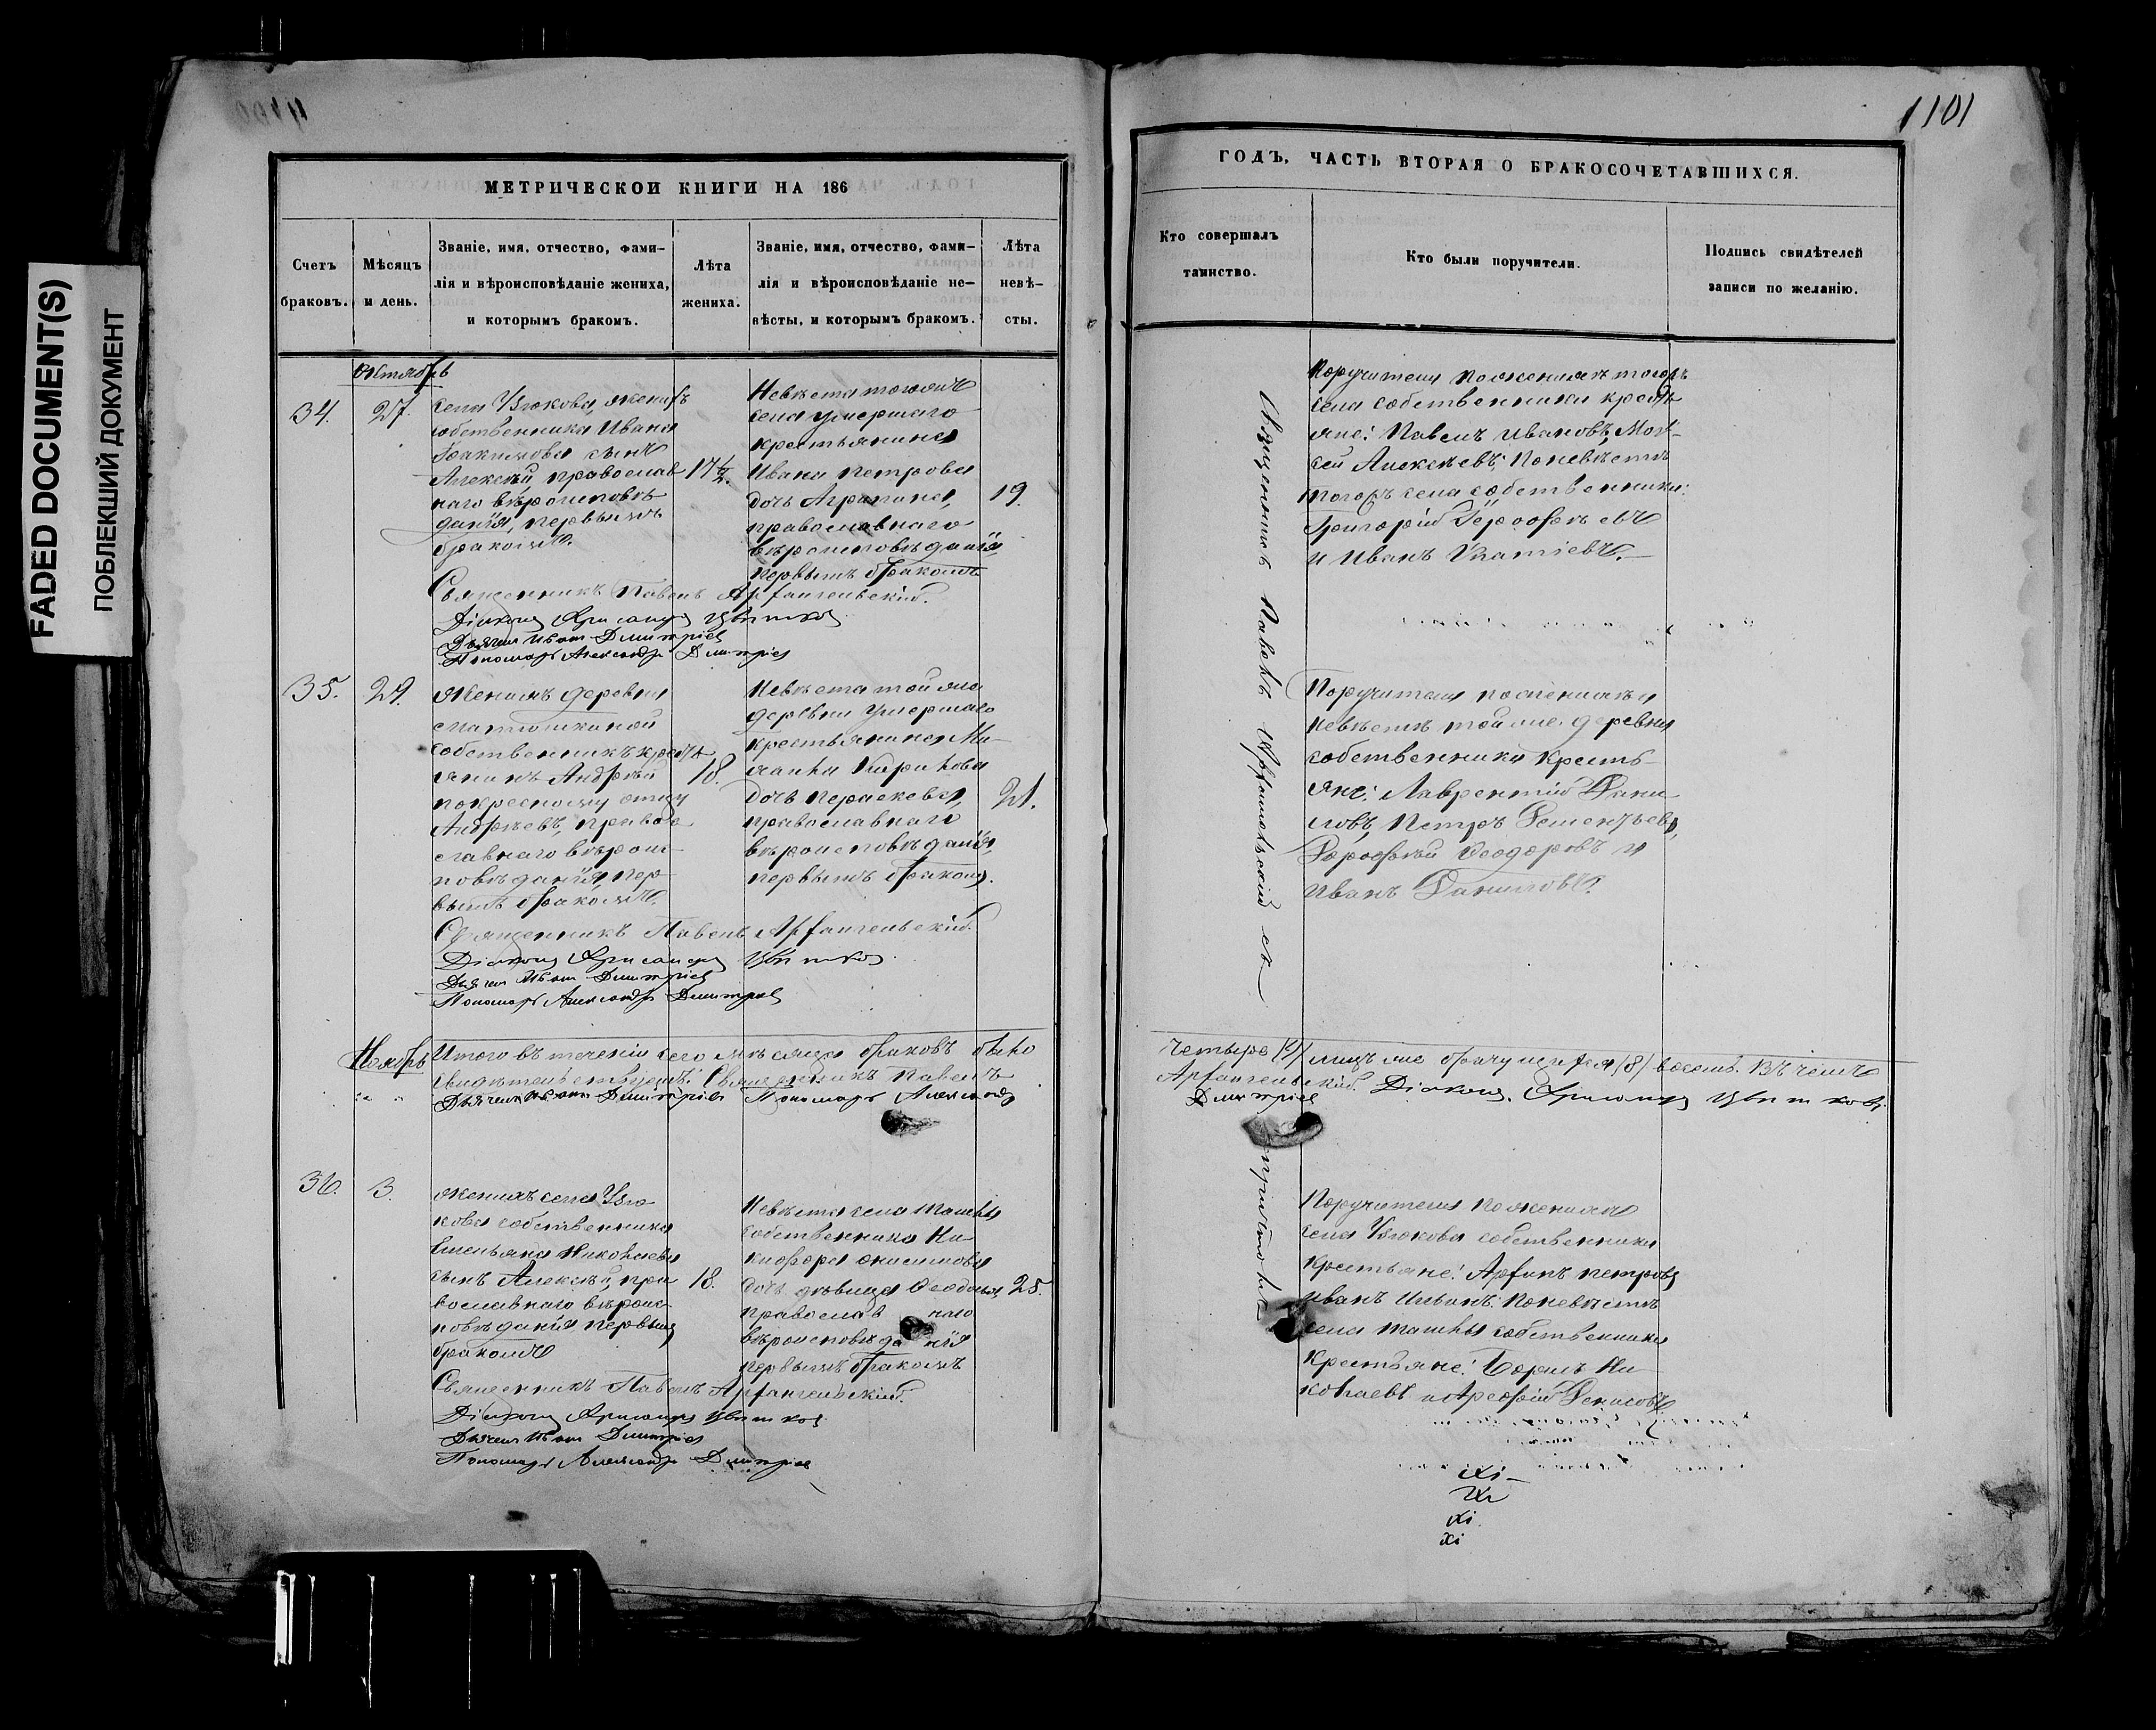 FADED DOCUMENT(S)
ПОБЛЕКШИЙ ДОКУМЕНТ
МЕТРИЧЕСКОЙ КНИГИ НА 186
Счетъ браковъ.
Мѣсяцъ и день.
Званіе, имя, отчество, фами-
лія и вѣроисповѣданіе жениха,
и которымъ бракомъ.
Лѣта жениха.
Званіе, имя, отчество, фами-
лія и вѣроисповѣданіе не-
вѣсты, и которымъ бракомъ.
Лѣта
невѣ-
сты.
Октябрь
34.
27.
села Узюкова, женихъ
собственника Ивана
сынъ
Алексѣй, православ
наго вѣроисповѣ
данія, первымъ
бракомъ.
17 1/2.
Невѣста тогожъ
села умершаго
крестьянина
Ивана Петрова
дочь Агрипина,
православнаго
вѣроисповѣданія,
первымъ бракомъ
19.
Священникъ Павелъ Архангельскій.
Діаконъ Цвѣтковъ
Дьячекъ Иванъ Димитріев
Пономарь Александръ Димитріев
35.
29.
Женихъ деревни
собственникъ кресть
янинъ Андрей
покрестному отцу
Андреевъ, право
славнаго вѣроис
повѣданія, пер
вымъ бракомъ.
18.
Невѣста той же
деревни умершаго
крестьянина Ми
хаила Кирилова
дочь Параскева,
православнаго
вѣроисповѣданія,
первымъ бракомъ.
21.
Священникъ Павелъ Архангельскій.
Діаконъ Цвѣтковъ
Дьячекъ Иванъ Димитріев
Пономарь Александръ Димитріев
Ноябрь
Итого въ теченіи сего мѣсяца браковъ было
свидѣтельствуемъ: Священникъ Павелъ
Дьячекъ Иванъ Димитріев Пономарь Александръ
36.
3.
Женихъ села Узю
кова собственника
Емельяна Николаева
сынъ Алексѣй, пра
вославнаго вѣроис
повѣданія первымъ
бракомъ
18.
Невѣста села Ташлы
собственника Ни
кифора Анисимова
дочь дѣвица Феодосья
православ наго
вѣроисповѣда нія
первымъ бракомъ
25.
Священникъ Павелъ Архангельскій.
Діаконъ Цвѣтков
Дьячекъ Иванъ Димитріев
Пономарь Александръ Димитріев
1101
ГОДЪ, ЧАСТЬ ВТОРАЯ О БРАКОСОЧЕТАВШИХСЯ.
Кто совершалъ
таинство.
Кто были поручители.
Подпись свидѣтелей
записи по желанію.
Священникъ Павелъ Архангельскій съ
причтомъ
Поручители по женихѣ тогожъ
села собственники кресть
яне: Павелъ Ивановъ, Мой
сей Алексѣевъ; по невѣстѣ
тогожъ села собственники:
Григорій
и Иванъ Игнатіевъ.
Поручители по женихѣ и
невѣстѣ той же деревни
собственники кресть
яне: Лаврентій Дани
ловъ, Петръ
Дорофѣй Ѳеодоровъ и
Иванъ Даниловъ.
четыре (4) лицъ же (8) восемь. Въ чемъ
Архангельскій. Діаконъ Цвѣтковъ.
Димитріев
Поручители по женихѣ
села Узюкова собственники
крестьяне: Архипъ Петровъ
Иванъ Ильинъ. По невѣстѣ
села Ташлы собственники
крестьяне: Борисъ Ни
колаевъ Денисовъ.